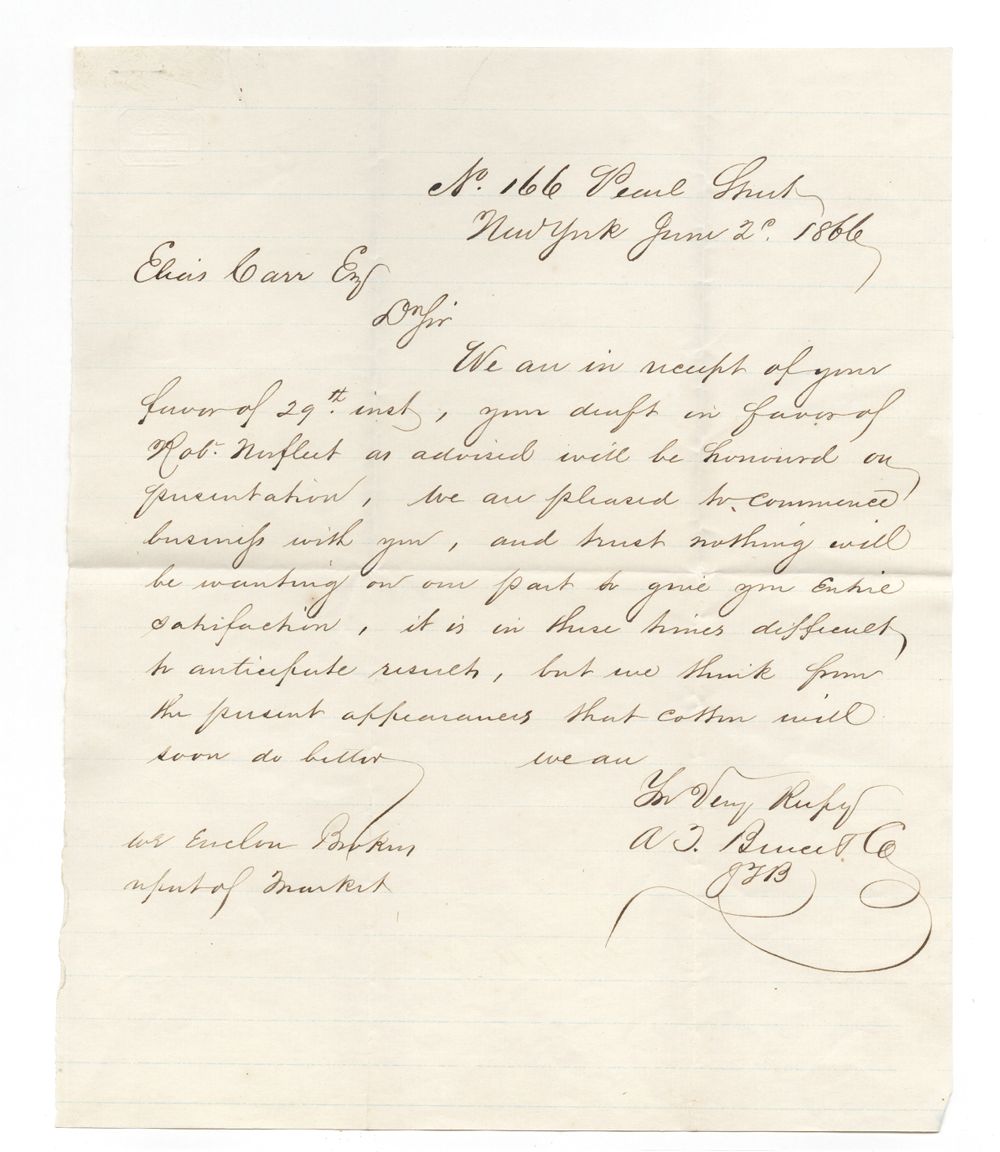 No. 166 Pearl Street
New York June 2d. 1866
Elias Carr Esq
Dr Sir
We are in receipt of your
favor of 29th. inst, your draft in favor of
Robt. Norfleet as advised will be honourd on
presentation, We are pleased to commence
business with you, and trust nothing will
be wanting on our part to give you Entire
satisfaction, it is in these times difficult
to anticipate results, but we think from
the present appearances that cotton will
soon do better we are
Yrs Very Respy
A T. Bruce & Co
JTB
we Enclose Brokers
report of Market